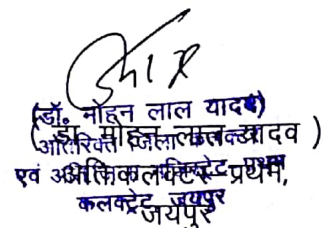 (डॉ. मोहन लाल यादव)
(डा. मोहन लाल यादव)
अतिरिक्त जिला कलक्टर
एवं
अति.कलक्टर प्रथम,
कलक्ट्रेट, जयपुर
जयपुर